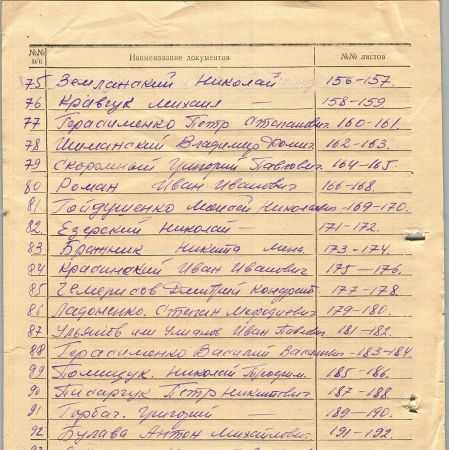 №№ п/п Наименование документов №№ листов
75 Землянский Николай 156-157.
76 Кравчук Михаил — 158-159.
77 Герасименко Петр Степанович 160-161.
78 Шиманский Владимир 162-163.
79 Скоромный Григорий Павлович 164-165.
80 Роман Иван Иванович 166-168.
81 Гайдученко Моисей Николаевич 169-170.
82. Езерский Николай — 171-172.
83 Бражник Никита 173-174.
84 Красинский Иван Иванович 175-176.
85 Чемерисов Дмитрий Кондрат. 177-178.
86 Ладоненко Степан Мефодиевич 179-180.
87 Ульянов или Иван Павлович 181-182.
88 Герасименко Василий 183-184.
99 Полищук Николай Трофим. 185-186.
90 Писарчук Петр Никитович 187-188
91 Горбач. Григорий — 189-190.
92 Булава Антон Михайлович 191-192.
93